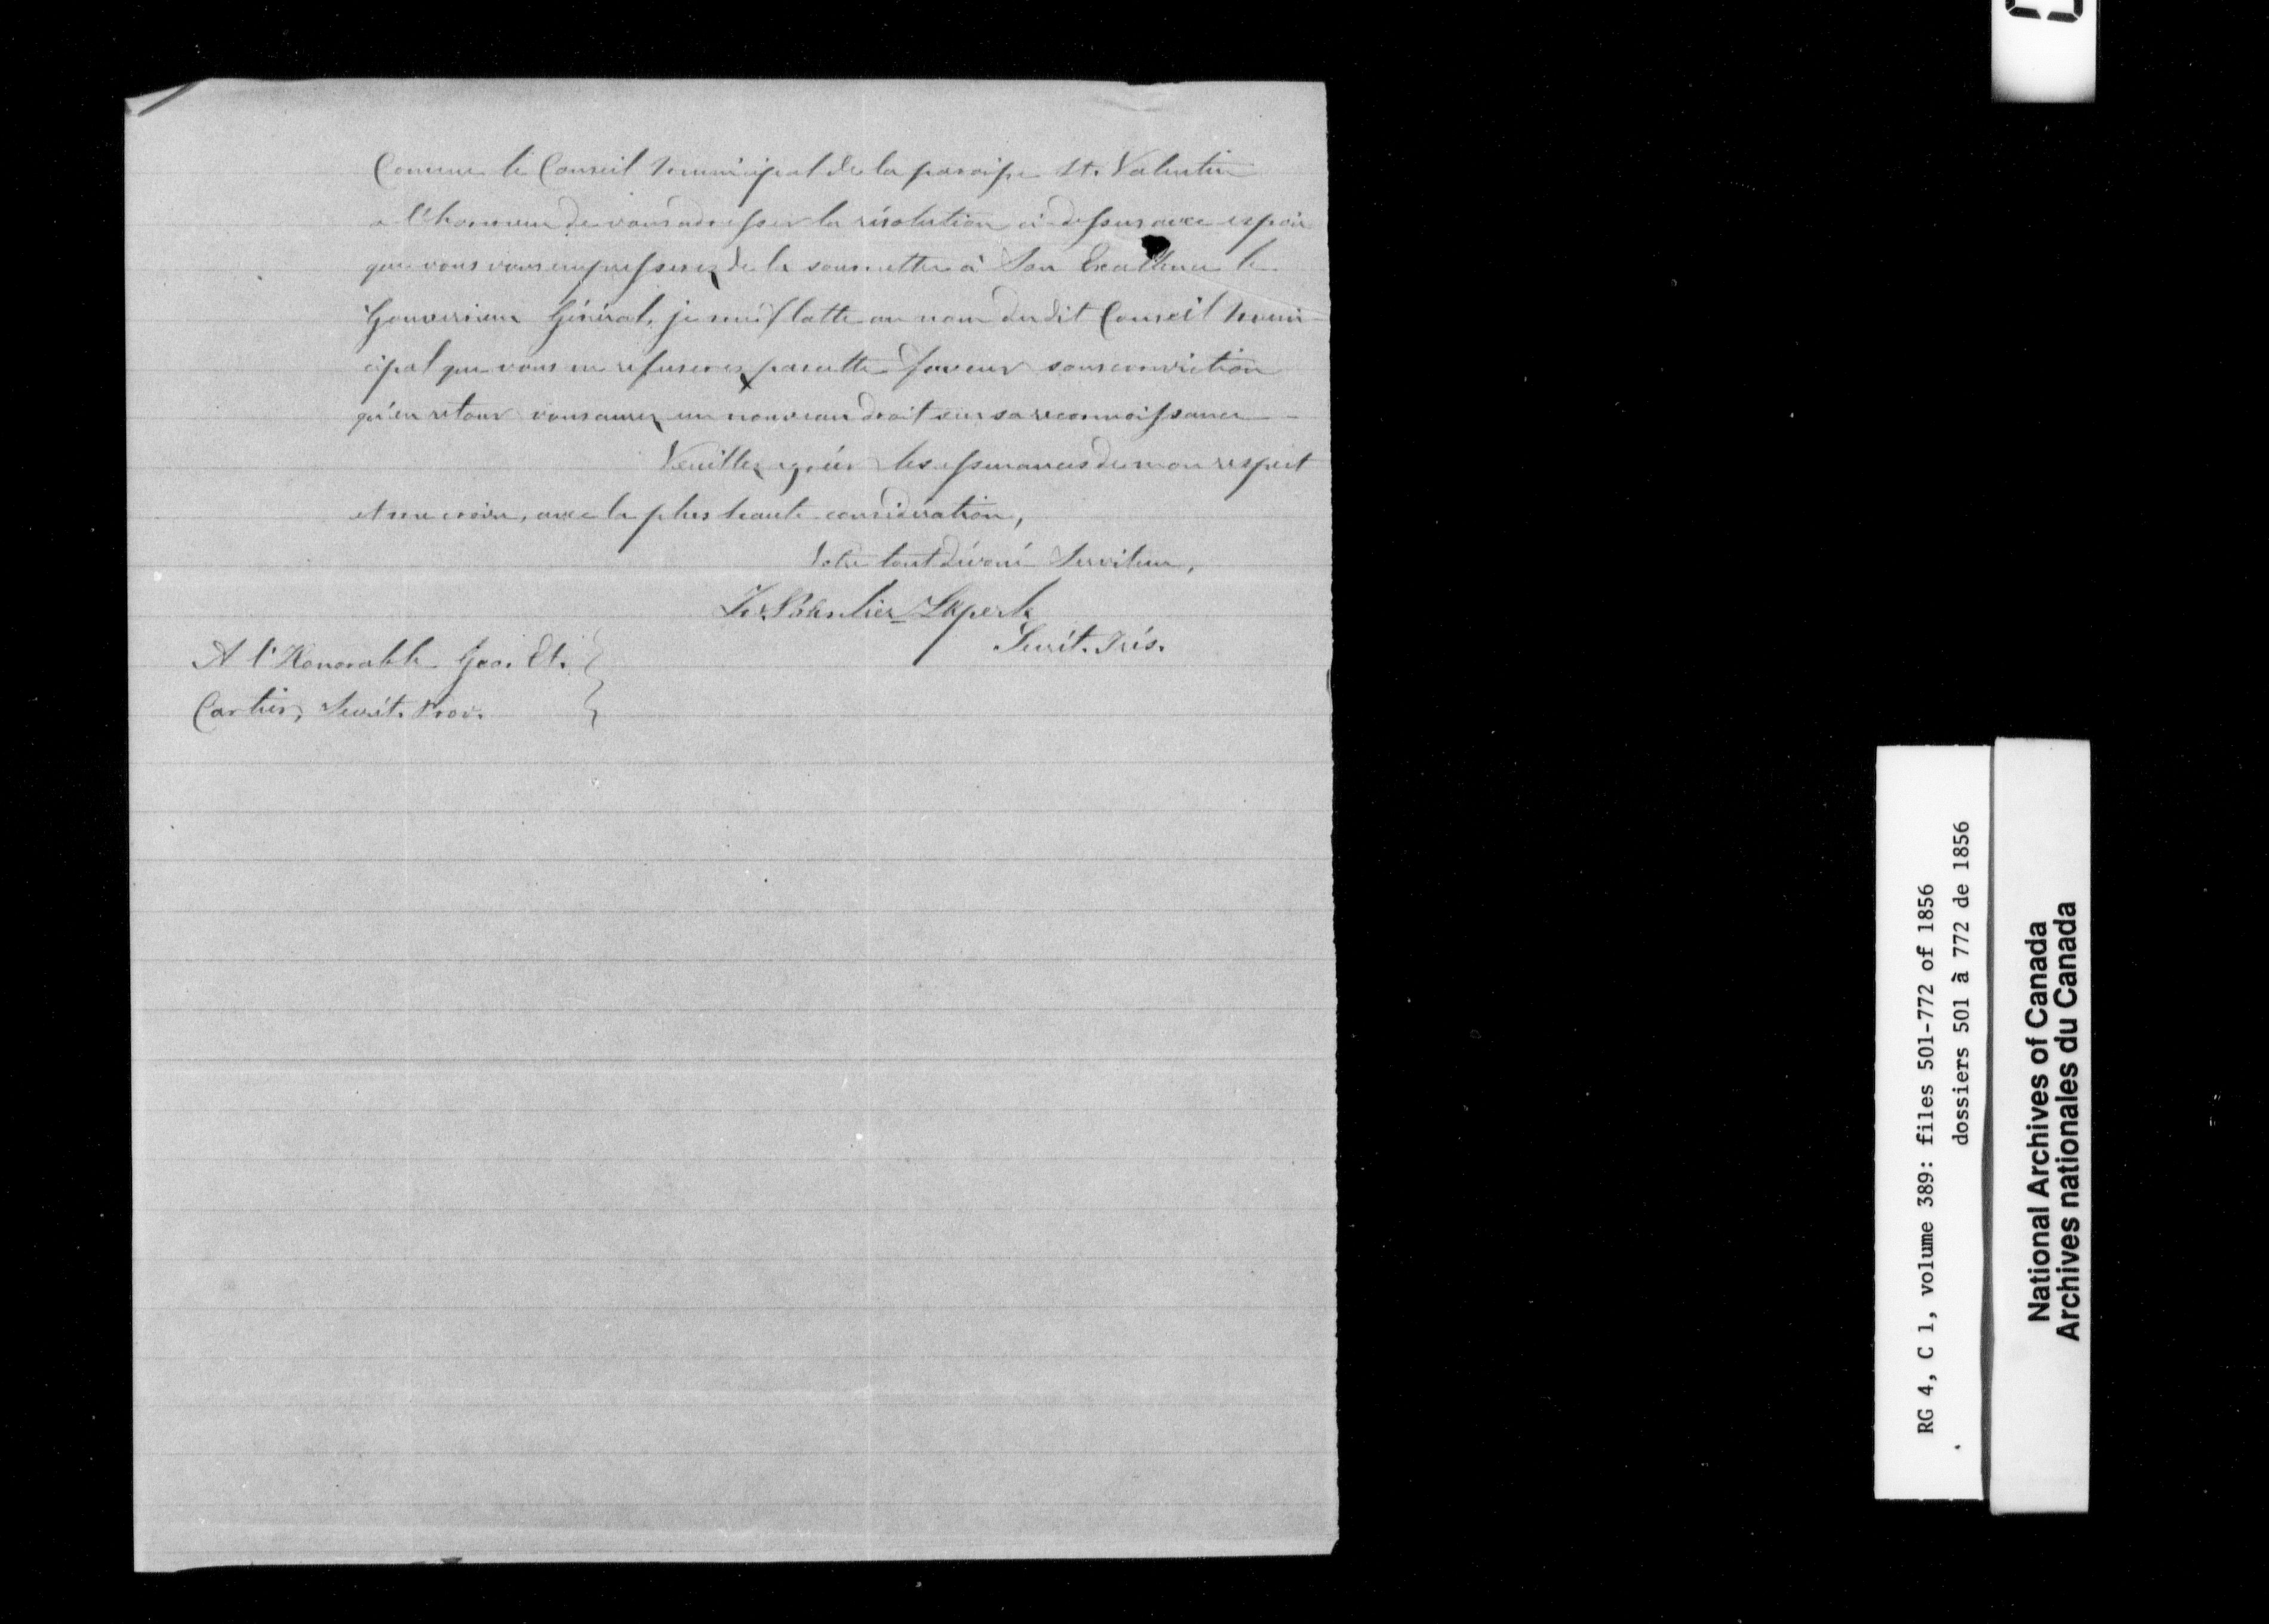 Comme le Conseil Municipal de la paroisse St. Valentin
a l'honneur de vous adresser la résolution ci-dessus avec espoir
que vous vous empresserez de la soumettre à Son Excellence le
Gouverneur Général, je me flatte au nom du dit Conseil Muni-
cipal que vous ne refuserez pas cette faveur sous conviction
qu'en retour vous aurez un nouveau droit sur sa reconnoissance
Veuillez agréer les assurances de mon respect
et me croire, avec la plus haute considération,
Votre tout dévoué Serviteur,
Secrét. Trés.
A l'Honorable Geo. Et.
Cartier, Secrét. Prov.
RG 4, C 1, volume 389: files 501-772 of 1856
dossiers 501 à 772 de 1856
National Archives of Canada
Archives nationales du Canada